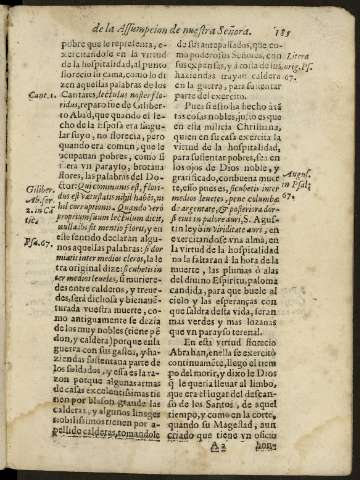 de la Assumpcion de nuestra Señora. 185
pobre que le representa, e-
xercitandole en la virtud
de la hospitalidad, al punto
florecio la cama, como lo di
zen aquellas palabras de los
Cant. 1.
Cantares, lectulus noster flo-
ridus, reparo fue de Giliber-
to Abad, que quando el le-
cho de la Esposa era singu-
lar suyo, no florecia, pero
quando era comun, que le
ocupauan pobres, como si
fuera vn parayso, brotaua
flores, las palabras del Do-
Giliber.
Ab. ser.
2. in Cã
tic.
ctor: Qui communis est, flori-
dus est vacuitatis nihil habet, ni
hil corruptionis. Quando verò
proprium suum lectulum dicit,
nulla ibi fit mentio floris, y en
este sentido declaran algu-
Psa. 67.
nos aquellas palabras: si dor
miatis inter medios cleros, la le
tra original dize: si cubetis in
ter medios leuetes, si muriere-
des entre calderos, y treue-
des, será dichosa y bienauē-
turada vuestra muerte, co-
mo antiguamente se dezia
de los muy nobles (tiene pē
don, y caldera) porque en la
guerra con sus gastos, y ha-
ziendas sustentaua parte de
los soldados, y essa es la ra-
zon porque algunas armas
de casas excelentissimas tie
nen por blason grande las
calderas, y algunos linages
nobilissimos tienen por a-
pellido calderas, tomandole
de sus antepassados, que co-
mo poderosos Señores, con
sus expensas, y a costa de sus
haziendas trayan caldera
en la guerra, para sustentar
parte del exercito.
Litera
orig. Ps.
67.
Pues si esto ha hecho à tã
tas cosas nobles, justo es que
en esta milicia Christiana,
quien en su casa exercita la
virtud de la hospitalidad,
para sustentar pobres, sea en
los ojos de Dios noble, y
gratificado, con buena muer
te, esso pues es, si cubetis inter
medios leuetes, pennæ columbæ
de argentatæ, & posteriora dor-
si eius in pallore auri, S. Agus-
August.
in Psal.
67.
tin leyò in viriditate auri, en
exercitandose vna alma, en
la virtud de la hospitalidad
no la faltaran à la hora de la
muerte, las plumas ò alas
del diuino Espiritu, paloma
candida, para que buele al
cielo y las esperanças con
que saldra desta vida, seran
mas verdes y mas lozanas
que vn parayso terenal.
En esta virtud florecio
Abrahan, en ella se exercitò
continuamēte, llegò el tiem
po del morir, y dixo le Dios
q̃ le queria lleuar al limbo,
que era el lugar del descan-
so de los Santos, de aquel
tiempo, y como en la corte,
quando su Magestad, a un
criado que tiene vn oficio
A a
hon-